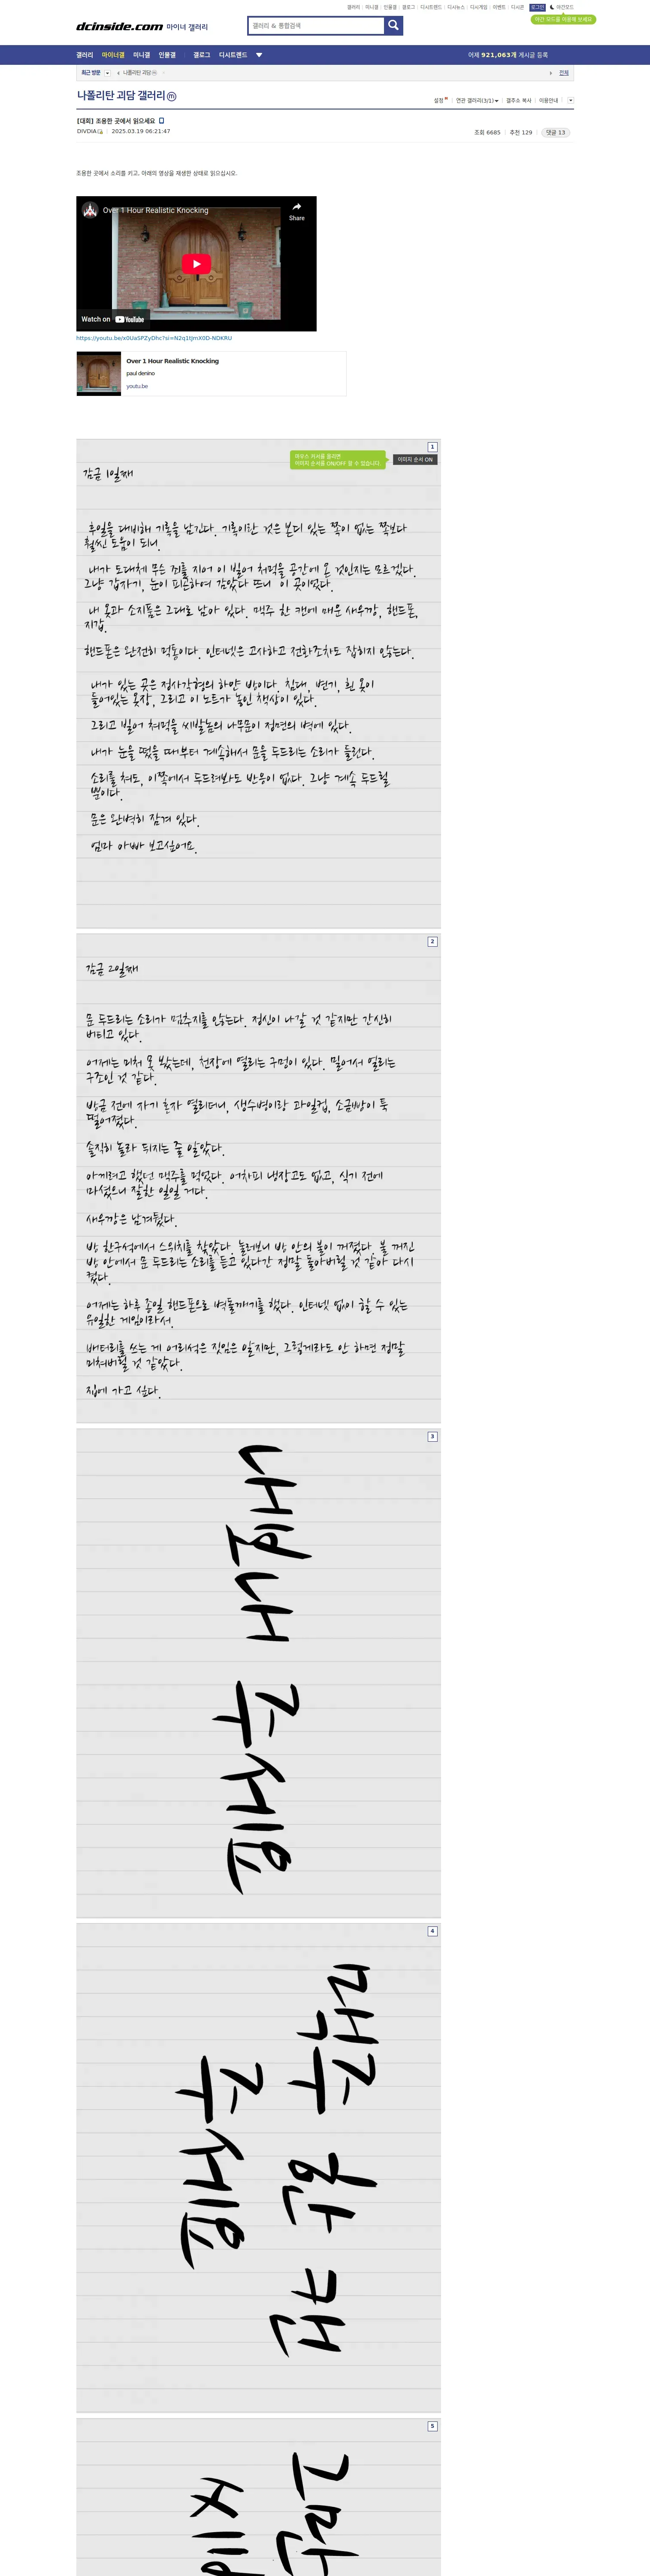 갤러리 미니갤 인물갤 갤로그 디시트렌드 디시뉴스 디시게임 이벤트 디시콘 로그인 야간모드
dcinside.com 마이너 갤러리
갤러리 & 통합검색
야간 모드를 이용해 보세요
갤러리 마이너갤 미니갤 인물갤 갤로그 디시트렌드 어제 921,063개 게시글 등록
최근 방문 나폴리탄 괴담 전체
나폴리탄 괴담 갤러리ⓜ
설정 연관 갤러리(3/1) 갤주소 복사 이용안내
[대회] 조용한 곳에서 읽으세요
DIVDIA 2025.03.19 06:21:47 조회 6685 추천 129 댓글 13
조용한 곳에서 소리를 키고, 아래의 영상을 재생한 상태로 읽으십시오.
Over 1 Hour Realistic Knocking
Share
Watch on YouTube
Over 1 Hour Realistic Knocking
paul denino
youtu.be
1
마우스 커서를 올리면
이미지 순서를 ON/OFF 할 수 있습니다.
이미지 순서 ON
감금 1일째
후일을 대비해 기록을 남긴다. 기록이란 것은 본디 있는 쪽이 없는 쪽보다
훨씬 도움이 되니.
내가 도대체 무슨 죄를 지어 이 빌어 쳐먹을 공간에 온 것인지는 모르겠다.
그냥 갑자기, 눈이 피곤하여 감았다 뜨니 이 곳이었다.
내 옷과 소지품은 그대로 남아 있다. 맥주 한 캔에 매운 새우깡, 핸드폰,
지갑.
핸드폰은 완전히 먹통이다. 인터넷은 고사하고 전화조차도 잡히지 않는다.
내가 있는 곳은 정사각형의 하얀 방이다. 침대, 변기, 흰 옷이
들어있는 옷장, 그리고 이 노트가 놓인 책상이 있다.
그리고 빌어 쳐먹을 씨발놈의 나무문이 정면의 벽에 있다.
내가 눈을 떴을 때부터 계속해서 문을 두드리는 소리가 들린다.
소리를 쳐도, 이쪽에서 두드려봐도 반응이 없다. 그냥 계속 두드릴
뿐이다.
문은 완벽히 잠겨 있다.
엄마 아빠 보고싶어요.
2
감금 2일째
문 두드리는 소리가 멈추지를 않는다. 정신이 나갈 것 같지만 간신히
버티고 있다.
어제는 미처 못 봤는데, 천장에 열리는 구멍이 있다. 밀어서 열리는
구조인 것 같다.
방금 전에 자기 혼자 열리더니, 생수병이랑 과일컵, 소금빵이 툭
떨어졌다.
솔직히 놀라 뒤지는 줄 알았다.
아끼려고 했던 맥주를 먹었다. 어차피 냉장고도 없고, 식기 전에
마셨으니 잘한 일일 거다.
새우깡은 남겨뒀다.
방 한구석에서 스위치를 찾았다. 눌러보니 방 안의 불이 꺼졌다. 불 꺼진
방 안에서 문 두드리는 소리를 듣고 있다간 정말 돌아버릴 것 같아 다시
켰다.
어제는 하루 종일 핸드폰으로 벽돌깨기를 했다. 인터넷 없이 할 수 있는
유일한 게임이라서.
배터리를 쓰는 게 어리석은 짓임은 알지만, 그렇게라도 안 하면 정말
미쳐버릴 것 같았다.
집에 가고 싶다.
3
4
5